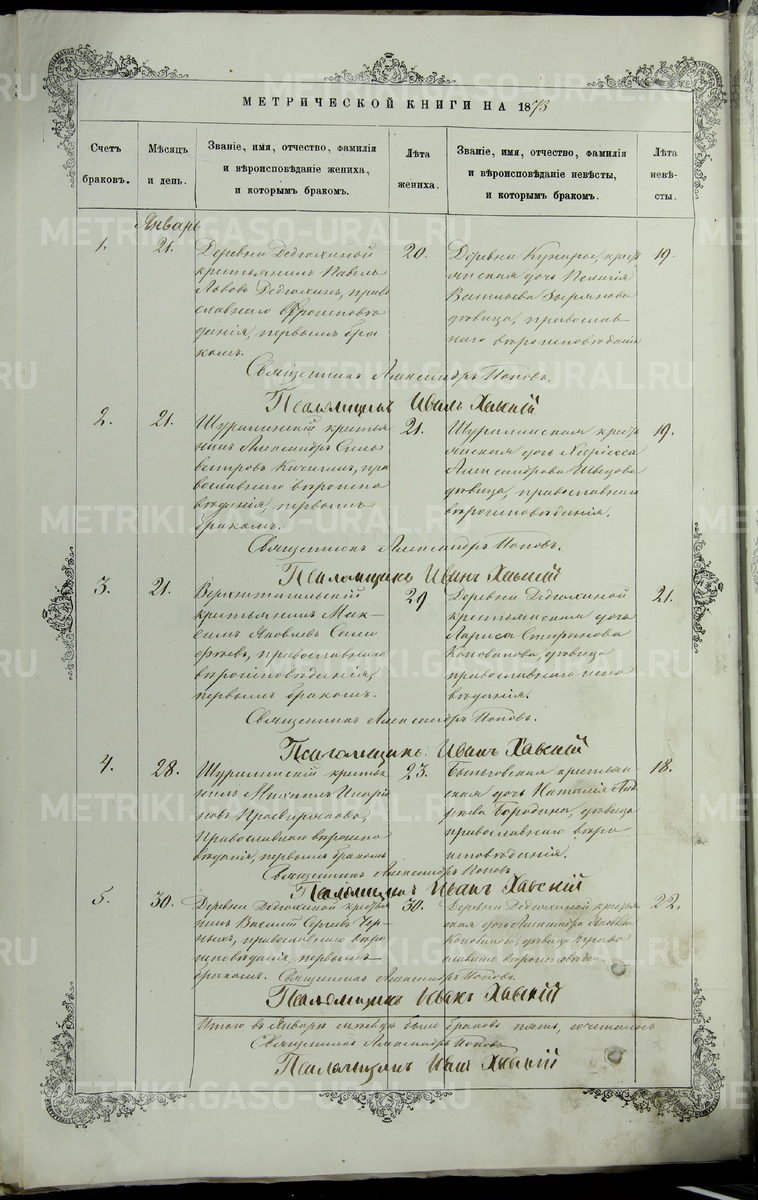 МЕТРИЧЕСКОЙ КНИГИ НА 1873
Счетъ браковъ.
Мѣсяцъ и день.
Званіе, имя, отчество, фамилія и вѣроисповѣданіе жениха, и которымъ бракомъ.
Лѣта жениха.
Званіе, имя, отчество, фамилія и вѣроисповѣданіе невѣсты, и которымъ бракомъ.
Лѣта невѣсты.
Январь
1.
21.
Деревни Дедюхиной
крестьянинъ Павелъ
Львовъ Дедюхинъ, право
славнаго вѣроисповѣ
данія, первымъ бра
комъ.
20.
Деревни
янская дочь Пелагія
Васильева Зырянова
дѣвица, православ
наго вѣроисповѣданія
19.
Священникъ Александръ Поповъ.
Псаломщикъ Иванъ Хавскій
2.
21.
Шуралинскій крестья
нинъ Александръ Силь
вестровъ Качигинъ, пра
вославнаго вѣроиспо
вѣданія, первымъ
бракомъ.
21.
Шуралинская крестъ
янская дочь
Александрова Швецова
дѣвица, православнаго
вѣроисповѣданія.
19.
Священникъ Александръ Поповъ.
Псаломщикъ Иванъ Хавскій
3.
21.
Верхнетагильскій
крестьянинъ Мак-
симъ Яковлевъ
православнаго
вѣроисповѣданія,
первымъ бракомъ.
29
Деревни Дедюхиной
крестьянская дочь
Лариса Стефанова
Коновалова, дѣвица
православнаго испо
вѣданія.
21.
Священникъ Александръ Поповъ.
Псаломщикъ Иванъ Хавскій
4.
28.
Шуралинскій крестья
нинъ Михаилъ
новъ Просвиряковъ,
Православнаго вѣроиспо
вѣданія, первымъ бракомъ
23.
Быньговская крестьян
ская дочь Наталія
Бородина, дѣвица
православнаго вѣро
исповѣданія.
18.
Священникъ Александръ Поповъ
Псаломщикъ Иванъ Хавскій
5.
30.
Деревни Дедюхиной крестья
нинъ Василій Сергѣевъ Чер-
ныхъ, православнаго вѣро
исповѣданія, первымъ
бракомъ.
30.
Деревни Дедюхиной крестья
нская дочь Александра Яковлева
Коновалова, дѣвица право
славнаго вѣроисповѣда
22.
Священникъ Александръ Поповъ.
Псаломщикъ Иванъ Хавскій
Итого въ Январѣ мѣсяцѣ было браковъ пять, сочиталось
Священникъ Александръ Поповъ
Псаломщикъ Иванъ Хавскій
METRIKI.GASO-URAL.RU